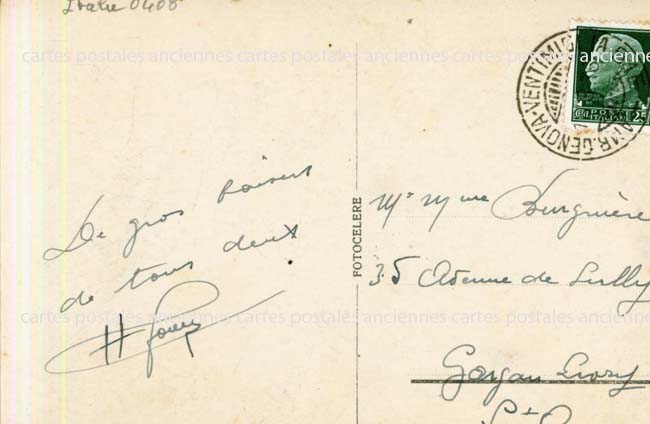 Italie 0408
cartes postales anciennes cartes postales anciennes cartes postales anciennes
AMB. GENOVA-VENTIMIG
POSTE ITALIANE
CENT 25
De gros baisers
de tous deux
FOTOCELERE
Mr Mme Bourguière
35 Avenue de Sully
cartes postales anciennes cartes postales anciennes cartes postales anciennes
Gargan Livry